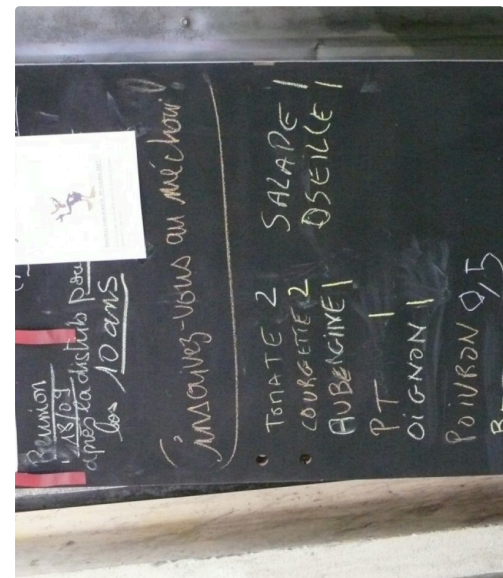 Réunion
13/09
après la distrib pour
les 10 ans
inscrivez-vous au méchoui!
TOMATE 2
COURGETTE 2
AUBERGINE 1
PT 1
OIGNON 1
POIVRON 0,5
SALADE 1
OSEILLE 1